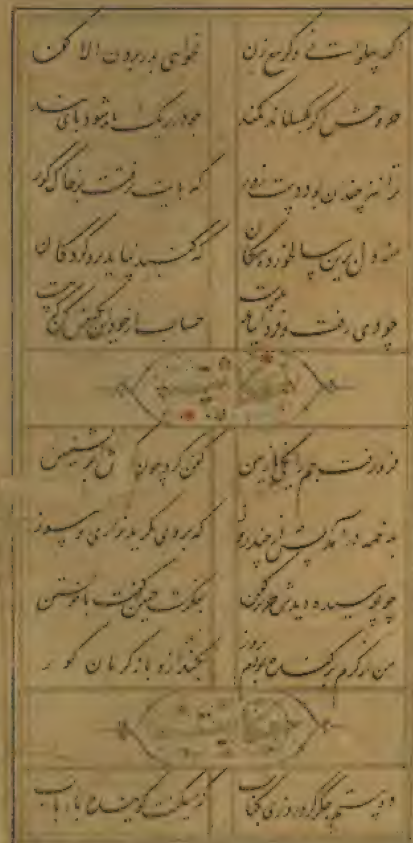 اگر پهلوانی و گر تیغ زن نخواهی بدر بردن الا کفن
خر وحش اگر بگسلاند کمند چو در ریگ ماند شود پای بند
ترا نیز چندان بود دست زور که پایت نرفت در خاک گور
منه دل برین سالخورده مکان که گنبد نپاید برو گردکان
چو دی رفت و فردا نیامد بدست حساب از خود این یک نفس کن که هست
حکایت
فرو رفت جم را یکی نازنین کفن کرد چون کرمش ابریشمین
بدخمه درآمد پس از چند روز که بر وی بگرید بزاری و سوز
چو پوسیده دیدش حریرین کفن بفکرت چنین گفت با خویشتن
من از کرم برکنده بودم بزور بکندند ازو باز کرمان گور
حکایت
دو بیتم جگر کرد روزی کباب که میگفت گوینده با رباب